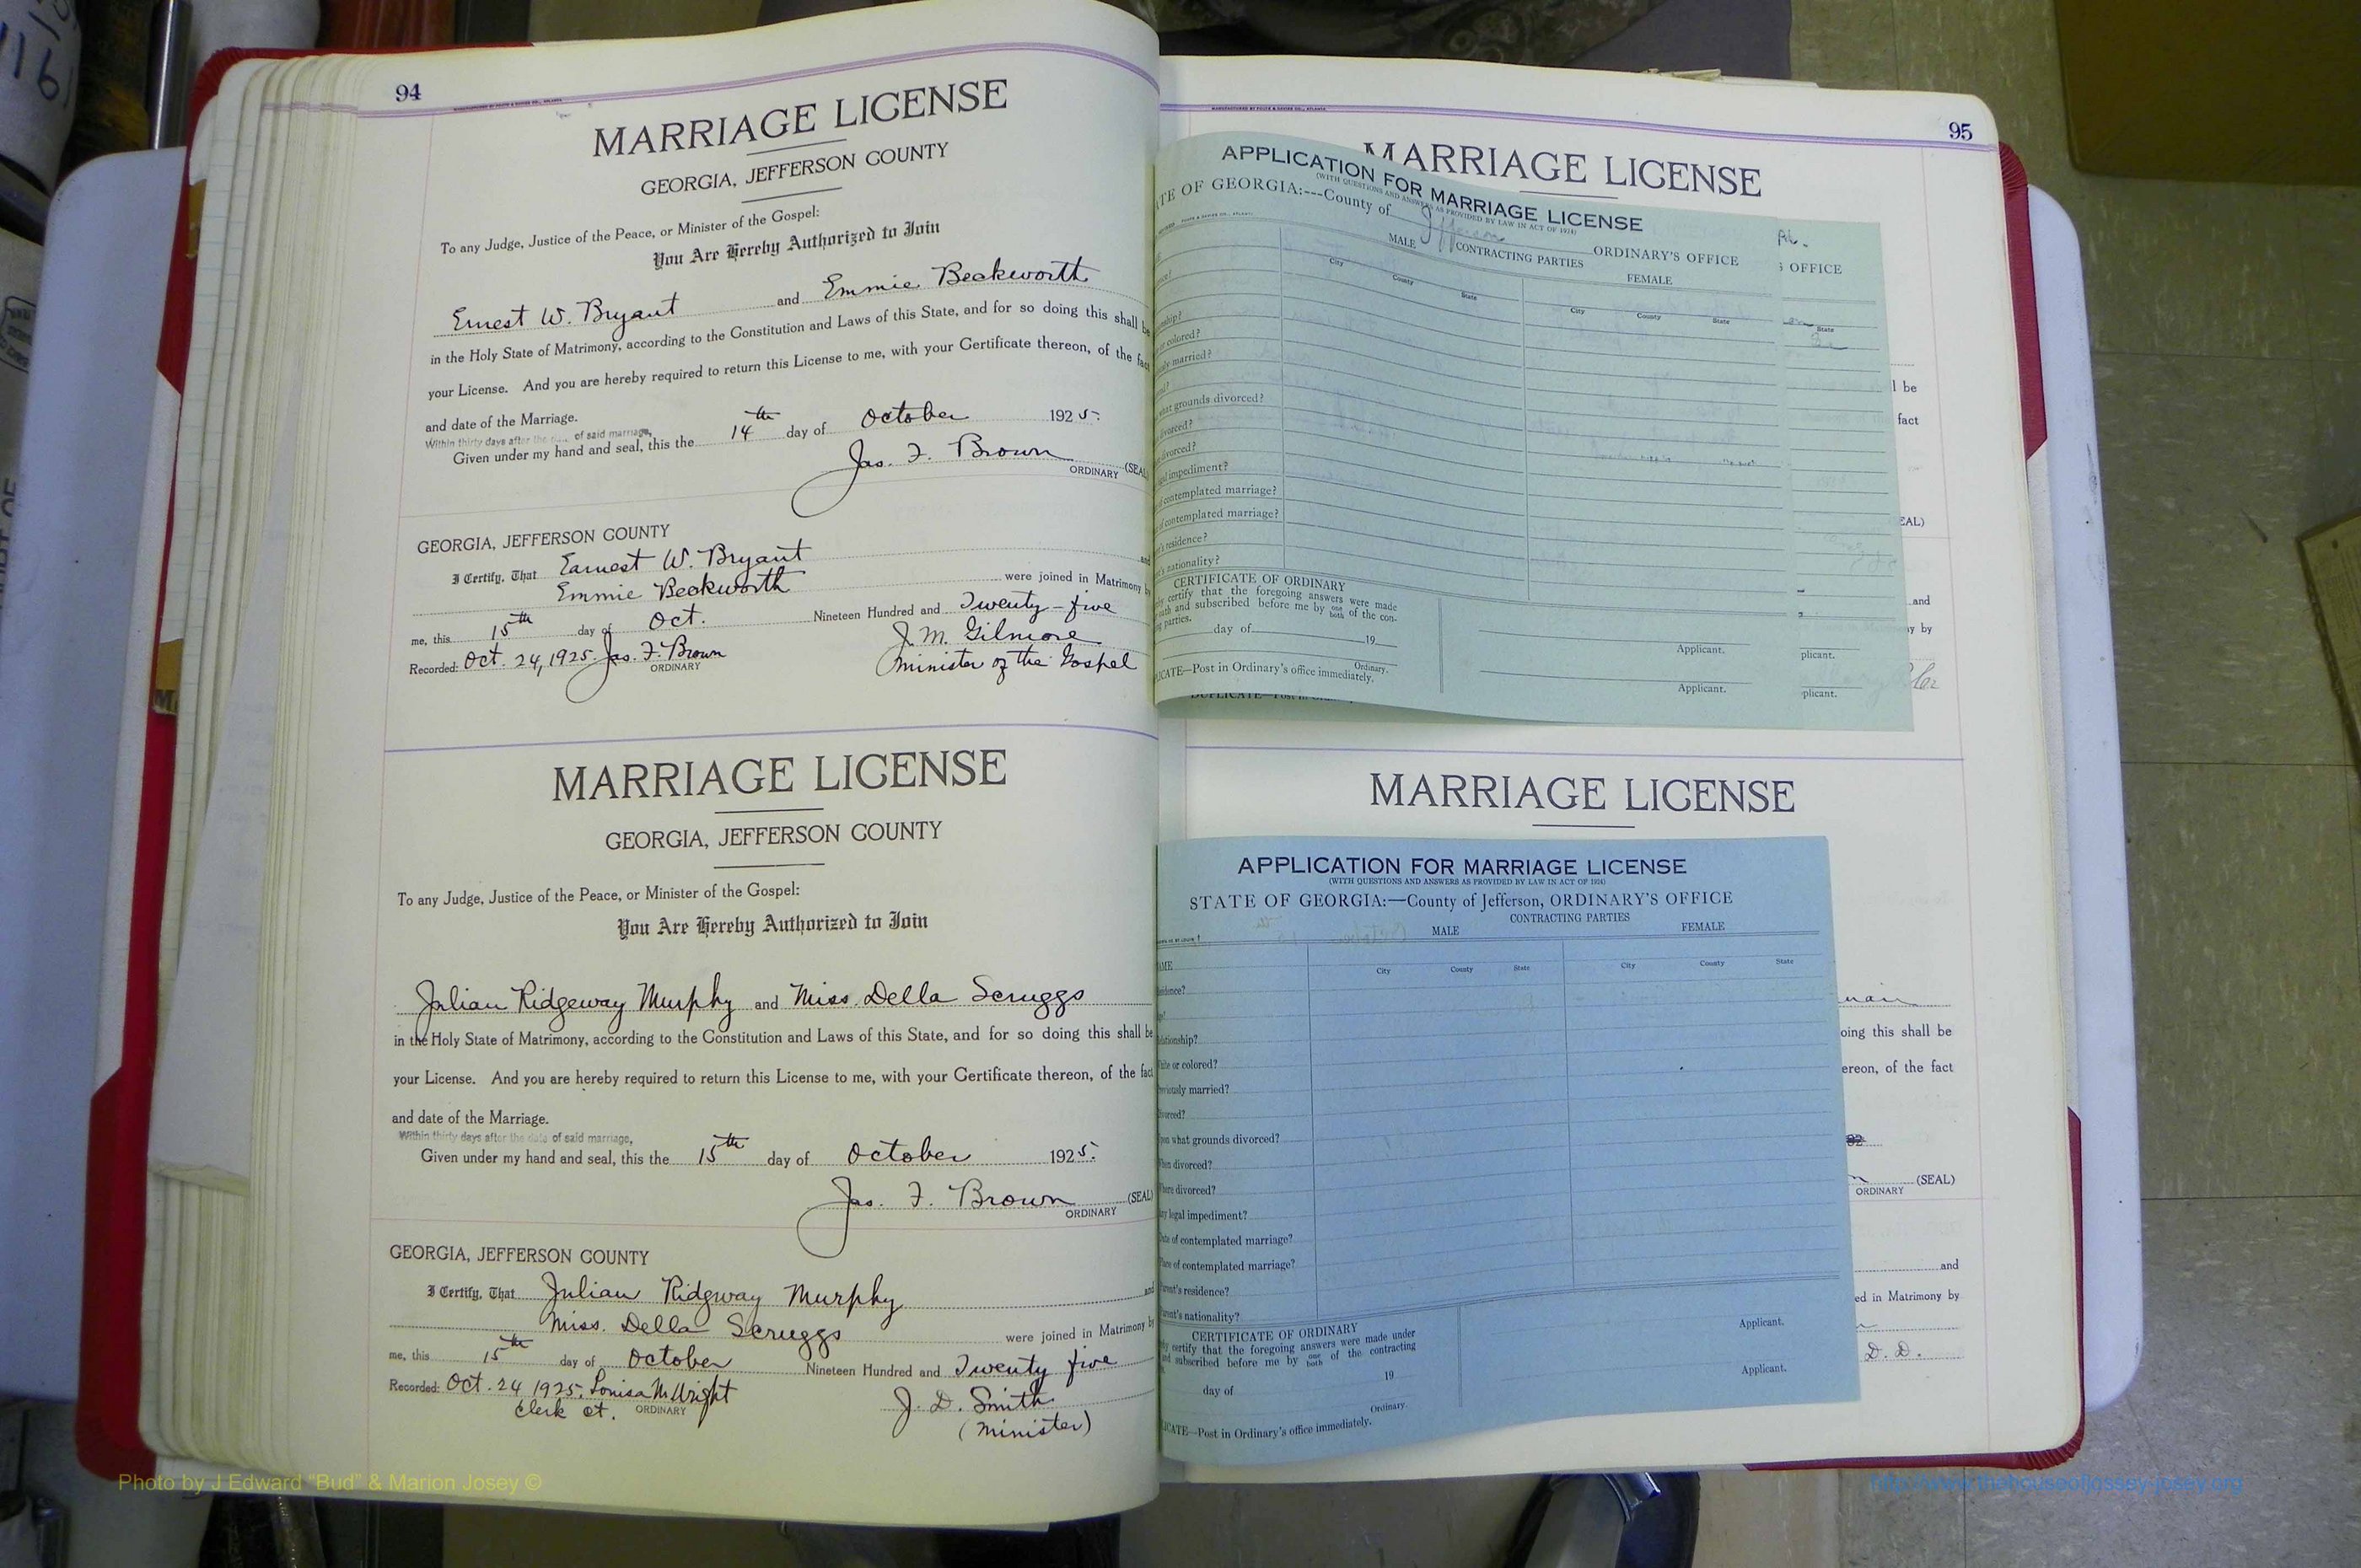 94
MARRIAGE LICENSE
GEORGIA, JEFFERSON COUNTY
To any Judge, Justice of the Peace, or Minister of the Gospel:
You Are Hereby Authorized to Join
Ernest W. Bryant and Emmie Beckworth
in the Holy State of Matrimony, according to the Constitution and Laws of this State, and for so doing this shall be
your License. And you are hereby required to return this License to me, with your Certificate thereon, of the fact
and date of the Marriage.
Within thirty days after the of said marriage,
Given under my hand and seal, this the 14th day of October 1925.
Jas. F. Brown (SEAL
ORDINARY
GEORGIA, JEFFERSON COUNTY
I Certify, That Earnest W. Bryant and
Emmie Beckworth were joined in Matrimony by
me, this 15th day of Oct. Nineteen Hundred and Twenty-five
Recorded: Oct. 24, 1925. Jas. F. Brown J. M. Gilmore
ORDINARY Minister of the Gospel
MARRIAGE LICENSE
GEORGIA, JEFFERSON COUNTY
To any Judge, Justice of the Peace, or Minister of the Gospel:
You Are Hereby Authorized to Join
Julian Ridgeway Murphy and Miss. Della Scruggs
in the Holy State of Matrimony, according to the Constitution and Laws of this State, and for so doing this shall be
your License. And you are hereby required to return this License to me, with your Certificate thereon, of the fact
and date of the Marriage.
Within thirty days after the date of said marriage,
Given under my hand and seal, this the 15th day of October 1925.
Jas. F. Brown (SEAL)
ORDINARY
GEORGIA, JEFFERSON COUNTY
I Certify, That Julian Ridgway Murphy and
Miss. Della Scruggs were joined in Matrimony by
me, this 15th day of October Nineteen Hundred and Twenty five
Recorded: Oct. 24 1925, Louisa M. Wright J. D. Smith
Clerk ct. ORDINARY (Minister)
95
MARRIAGE LICENSE
APPLICATION FOR MARRIAGE LICENSE
(WITH QUESTIONS AND ANSWERS AS PROVIDED BY LAW IN ACT OF 1924)
ATE OF GEORGIA:---County of Jefferson ORDINARY'S OFFICE
OFFICE
MALE CONTRACTING PARTIES FEMALE
City County State City County State
State
nship?
or colored?
sly married?
what grounds divorced?
divorced?
divorced?
gal impediment?
of contemplated marriage?
of contemplated marriage?
nt's residence?
nt's nationality?
CERTIFICATE OF ORDINARY
certify that the foregoing answers were made
oath and subscribed before me by one both of the con-
ing parties.
day of 19
Ordinary.
LICATE—Post in Ordinary's office immediately.
Applicant.
Applicant.
plicant.
plicant.
l be
fact
EAL)
and
y by
MARRIAGE LICENSE
APPLICATION FOR MARRIAGE LICENSE
(WITH QUESTIONS AND ANSWERS AS PROVIDED BY LAW IN ACT OF 1924)
STATE OF GEORGIA:—County of Jefferson, ORDINARY'S OFFICE
CONTRACTING PARTIES
MALE FEMALE
AME
City County State City County State
esidence?
elationship?
hite or colored?
eviously married?
ivorced?
pon what grounds divorced?
hen divorced?
here divorced?
ny legal impediment?
ate of contemplated marriage?
lace of contemplated marriage?
arent's residence?
arent's nationality?
CERTIFICATE OF ORDINARY
by certify that the foregoing answers were made under
and subscribed before me by one both of the contracting
day of 19
Ordinary.
LICATE—Post in Ordinary's office immediately.
Applicant.
Applicant.
oing this shall be
ereon, of the fact
(SEAL)
ORDINARY
and
ed in Matrimony by
D. D.
Photo by J Edward "Bud" & Marion Josey ©
http://www.thehouseofjossey-josey.org